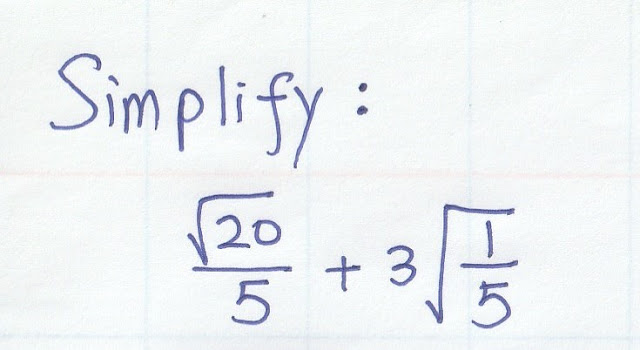 Simplify :
√20/5 + 3√1/5